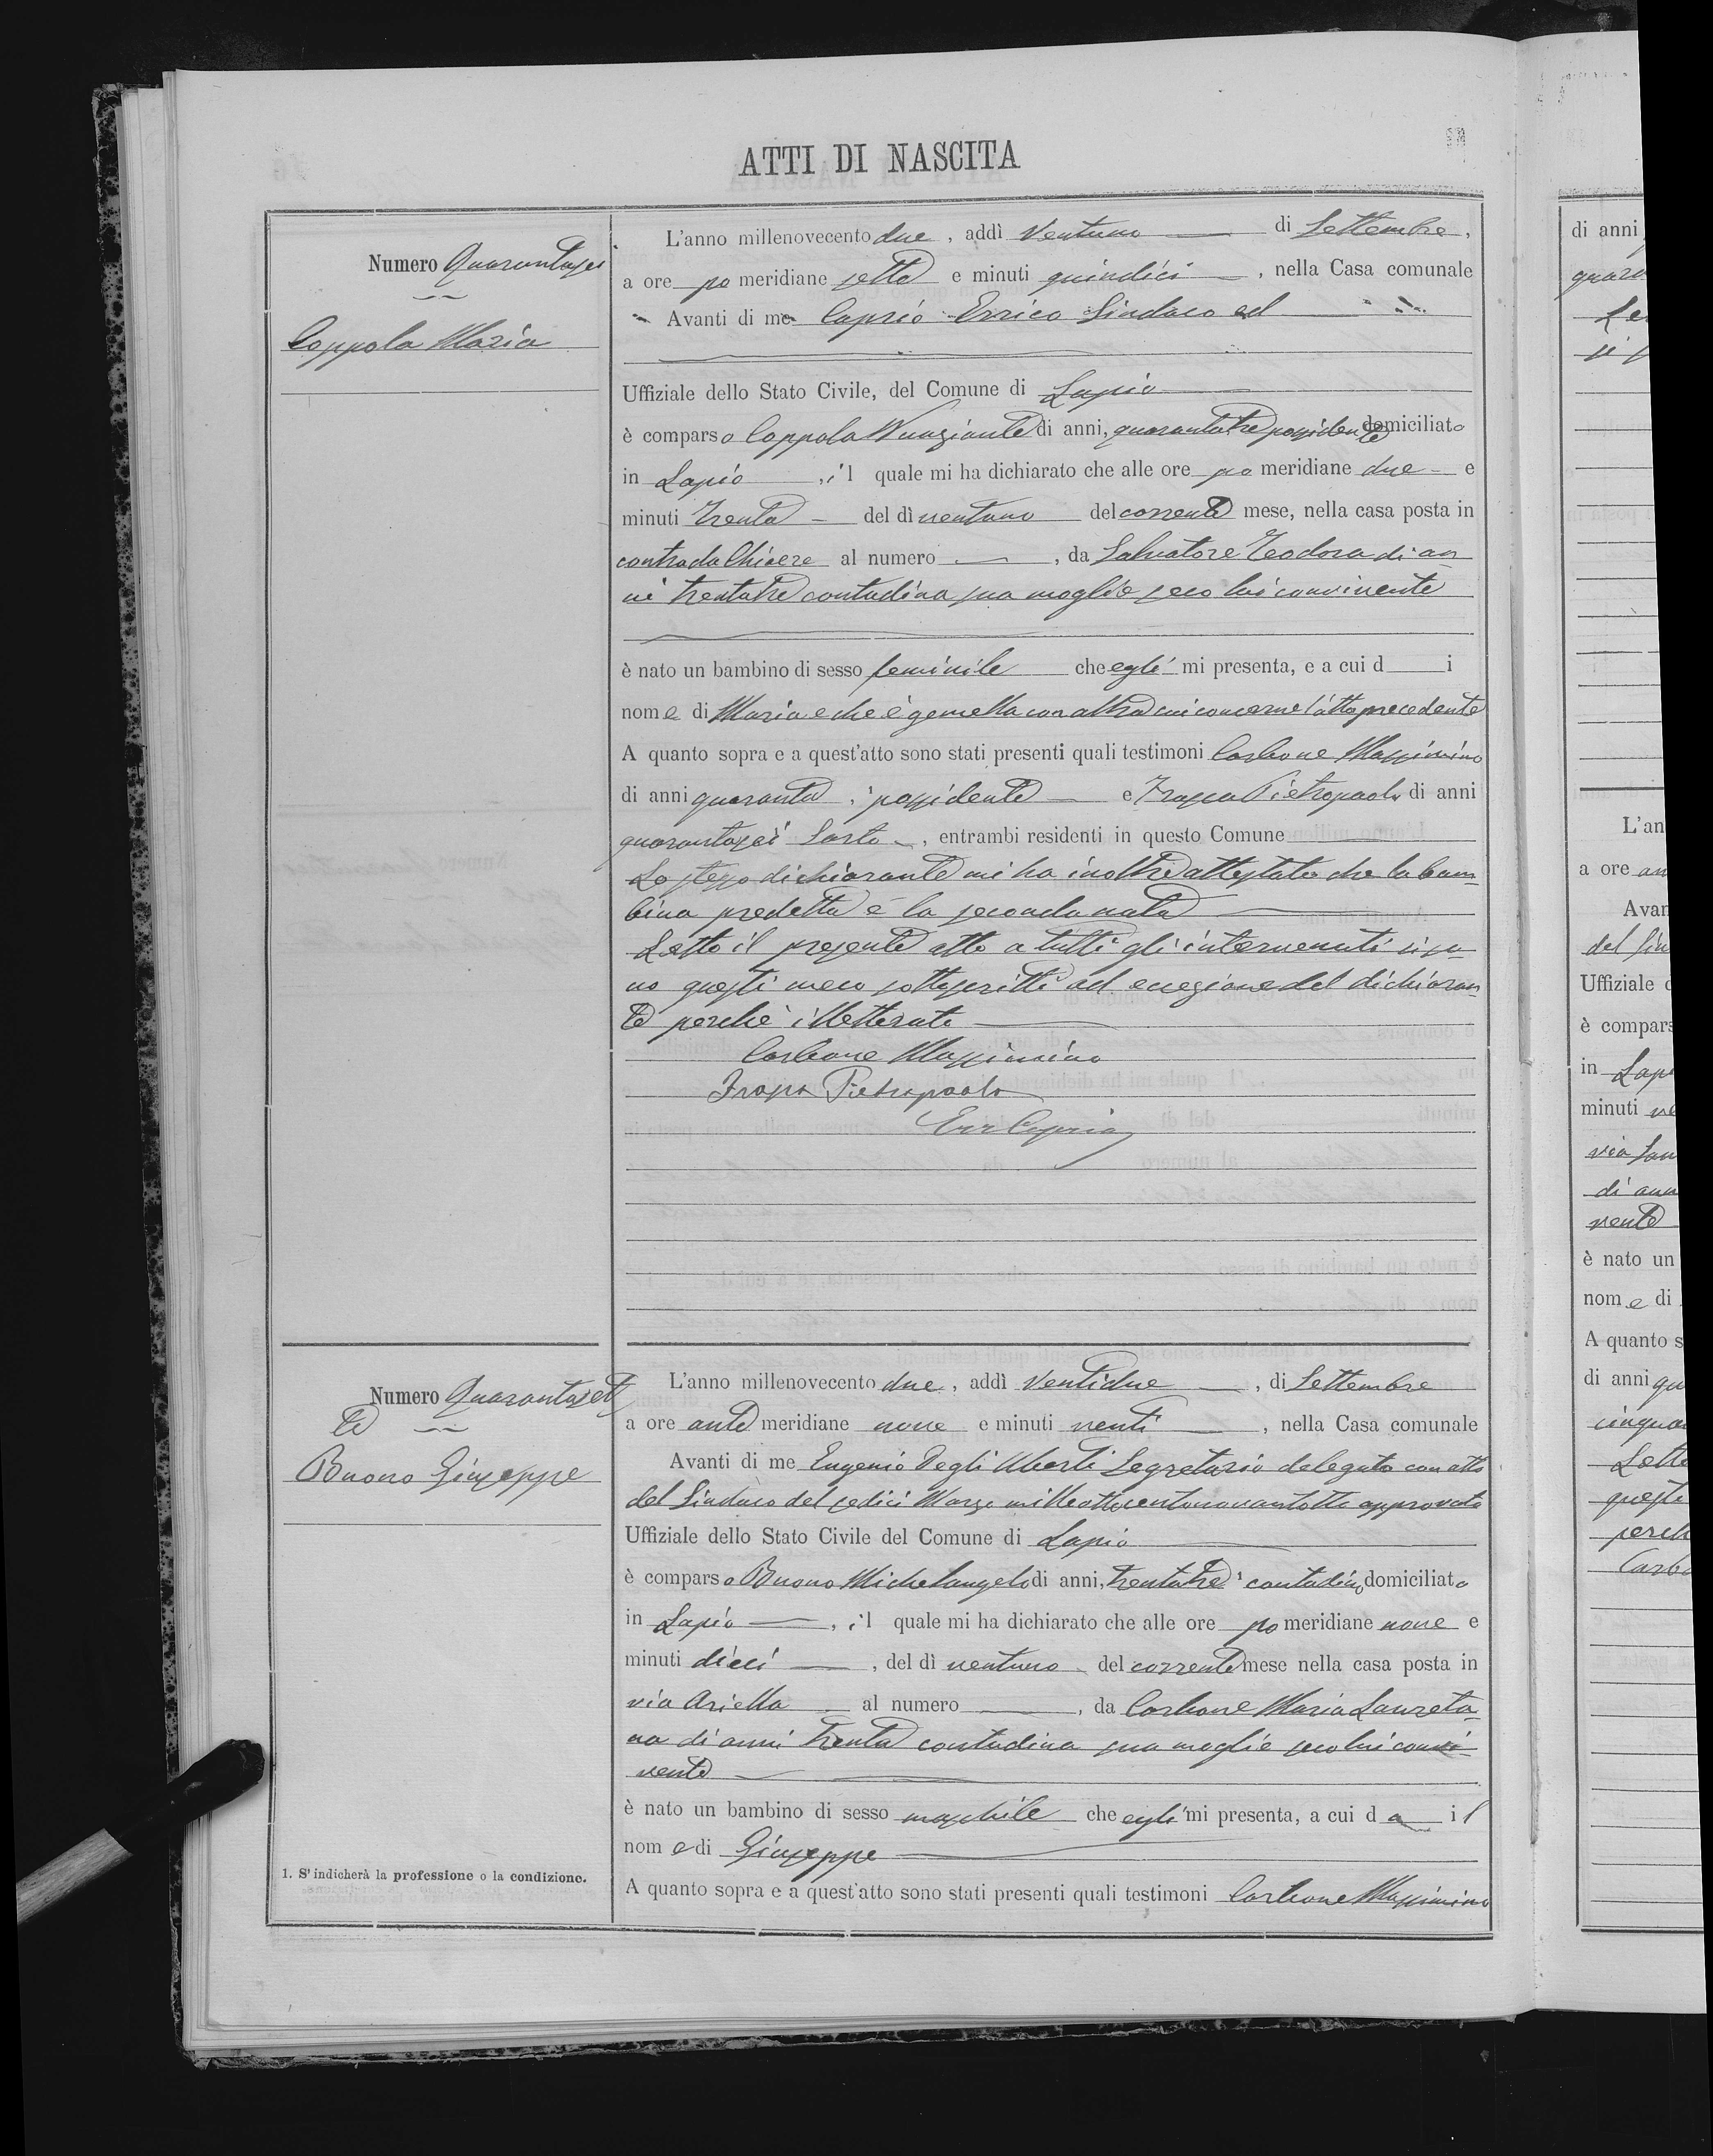 ATTI DI NASCITA
Numero Quarantasei
Coppola Maria
L'anno millenovecento due, addì ventuno di Settembre,
a ore po meridiane sette e minuti quindici, nella Casa comunale
Avanti di me Caprio Errico Sindaco ed
Uffiziale dello Stato Civile, del Comune di Lapio
è comparso Coppola Nunziante di anni, quarantatre possidente domiciliato
in Lapio, il quale mi ha dichiarato che alle ore po meridiane due e
minuti trenta del dì ventuno del corrente mese, nella casa posta in
contrada Chiaere al numero, da Salvatore Teodora di an
ni trentatre contadina sua moglie seco lui convivente
è nato un bambino di sesso feminile che egli mi presenta, e a cui d i
nome di Maria e che è gemella con altra cui concerne l'atto precedente
A quanto sopra e a quest'atto sono stati presenti quali testimoni Carbone Massimino
di anni quaranta, possidente e Frasca Pietropaolo di anni
quarantasei Sarto, entrambi residenti in questo Comune
Lo stesso dichiarante mi ha inoltre attestato che la bam-
bina predetta è la seconda nata
Letto il presente atto a tutti gli intervenuti si so-
no questi meco sottoscritti ad eccezione del dichiaran
te perchè illetterato
Carbone Massimino
Pietropaolo
Err Caprio
Numero Quarantaset
te
Buono Giuseppe
L'anno millenovecento due, addì ventidue, di Settembre
a ore ante meridiane nove e minuti venti, nella Casa comunale
Avanti di me Eugenio Degli Uberti Segretario delegato con atto
del Sindaco del sedici Marzo milleottocentonovantotto approvato
Uffiziale dello Stato Civile del Comune di Lapio
è comparso Buono Michelangelo di anni, trentatre contadino domiciliato
in Lapio, il quale mi ha dichiarato che alle ore po meridiane nove e
minuti dieci, del dì ventuno del corrente mese nella casa posta in
via Ariella al numero, da Carbone Maria Laureta-
na di anni trenta contadina sua moglie seco lui convi-
vente
è nato un bambino di sesso maschile che egli mi presenta, a cui da il
nome di Giuseppe
A quanto sopra e a quest'atto sono stati presenti quali testimoni Carbone Massimino
1. S'indicherà la professione o la condizione.
di anni
L'an
a ore an
Avan
del Sin
Uffiziale
è compars
in Lapi
minuti ve
via San
di ann
vente
è nato un
nome di
A quanto s
di anni qu
cinqua
Letto
questi
perch
Carbo